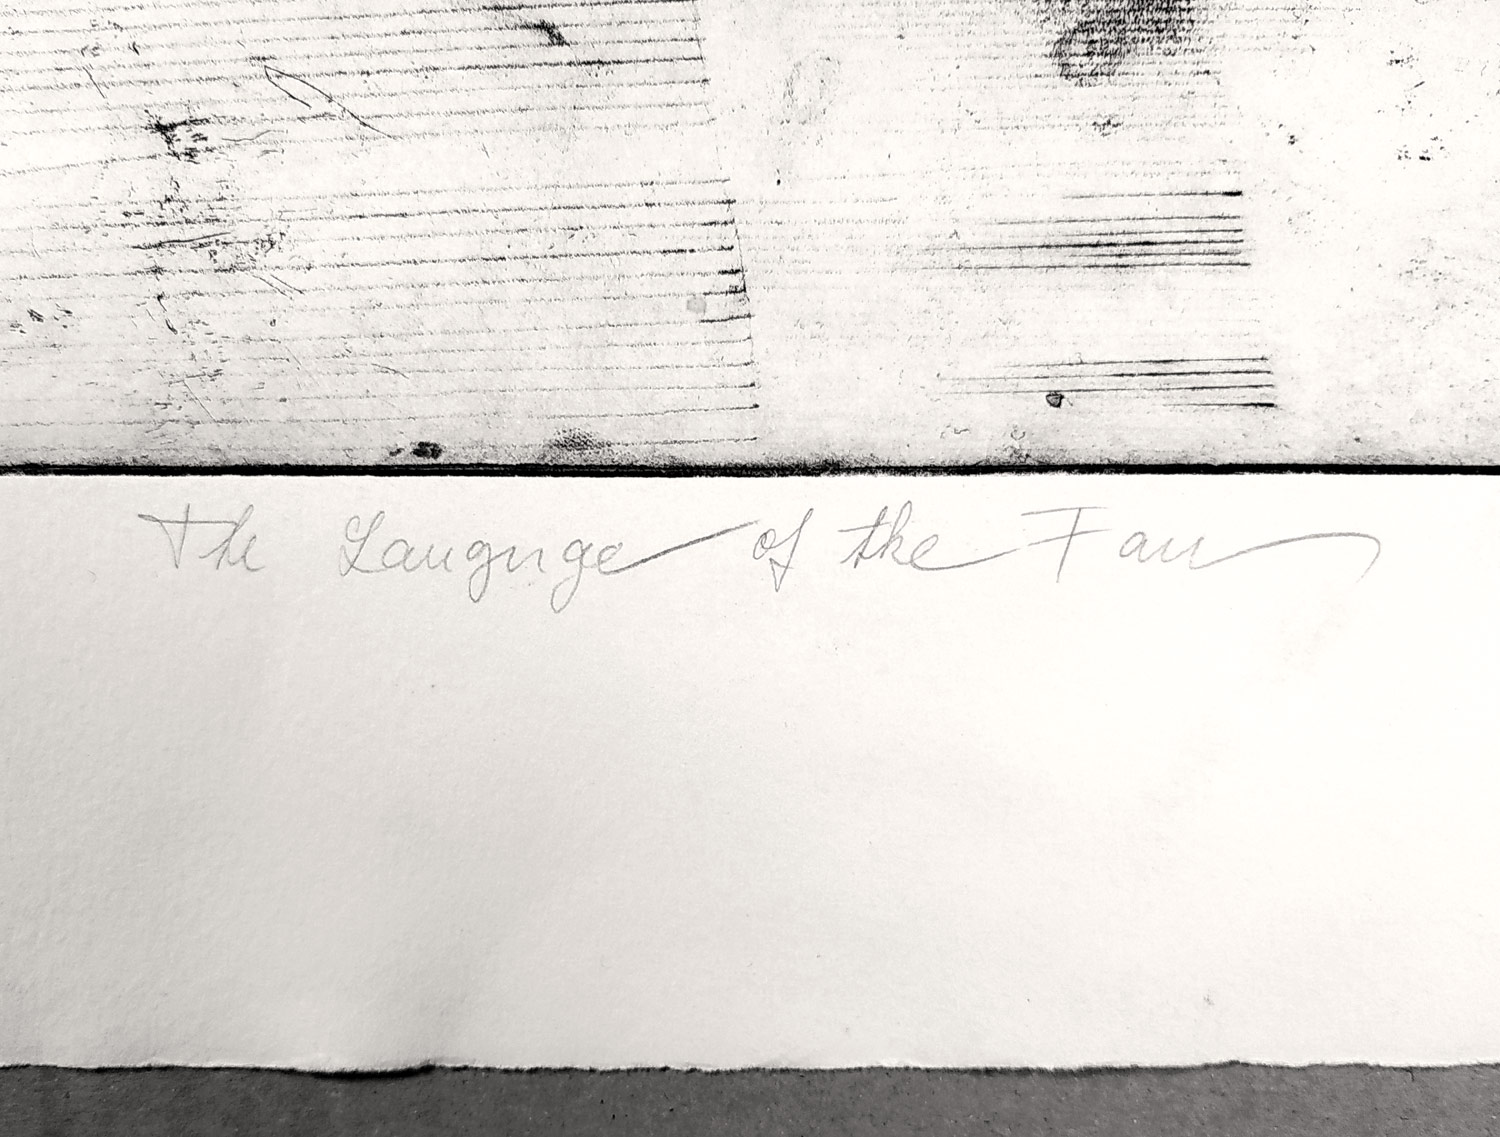 The Language of the Fan